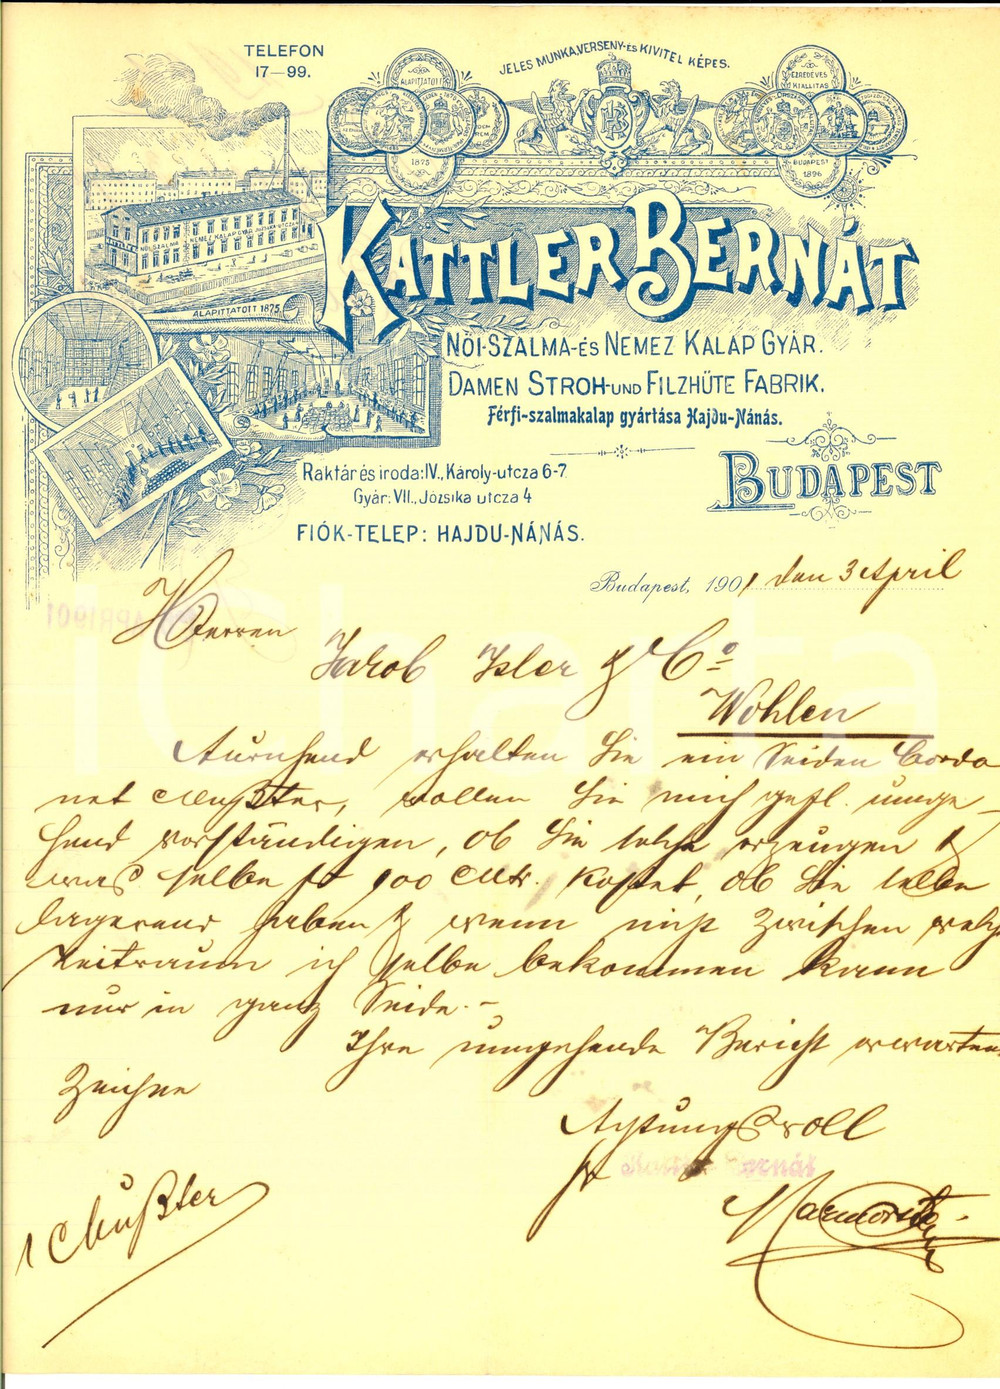 TELEFON
17—99.
JELES MUNKA, VERSENY- ÉS KIVITEL KÉPES.
ALAPITTATOTT
1875
EZREDÉVES
KIÁLLITÁS
BUDAPEST
1896
KB
NÖI SZALMA NEMEZ KALAP GYÁR JÓZSIKA UTCZA
ALAPITTATOTT 1875.
KATTLER BERNÁT
NÖI-SZALMA- ÉS NEMEZ KALAP GYÁR.
DAMEN STROH- UND FILZHÜTE FABRIK.
Férfi-szalmakalap gyártása Hajdu-Nánás.
Raktár és iroda: IV., Károly-utcza 6-7
Gyár: VII., Józsika utcza 4
BUDAPEST
FIÓK-TELEP: HAJDU-NÁNÁS.
Budapest, 1901 den 3 April
Herren
Jakob Isler & Co
Wohlen
erhalten Sie ein Seiden Cordo
net Mußter, wollen Sie mich gefl. umge-
hend verständigen, ob Sie solche erzeugen &
was selbe pr 100 Mtr. kostet, ob Sie selbe
lagernd haben & wenn nicht zwischen welch
Zeitraum ich selbe bekommen kann
nur in ganz Seide.-
Ihre umgehende Bericht erwarten
Zeichne
Achtungsvoll
pr Kattler Bernát
1 Mußter